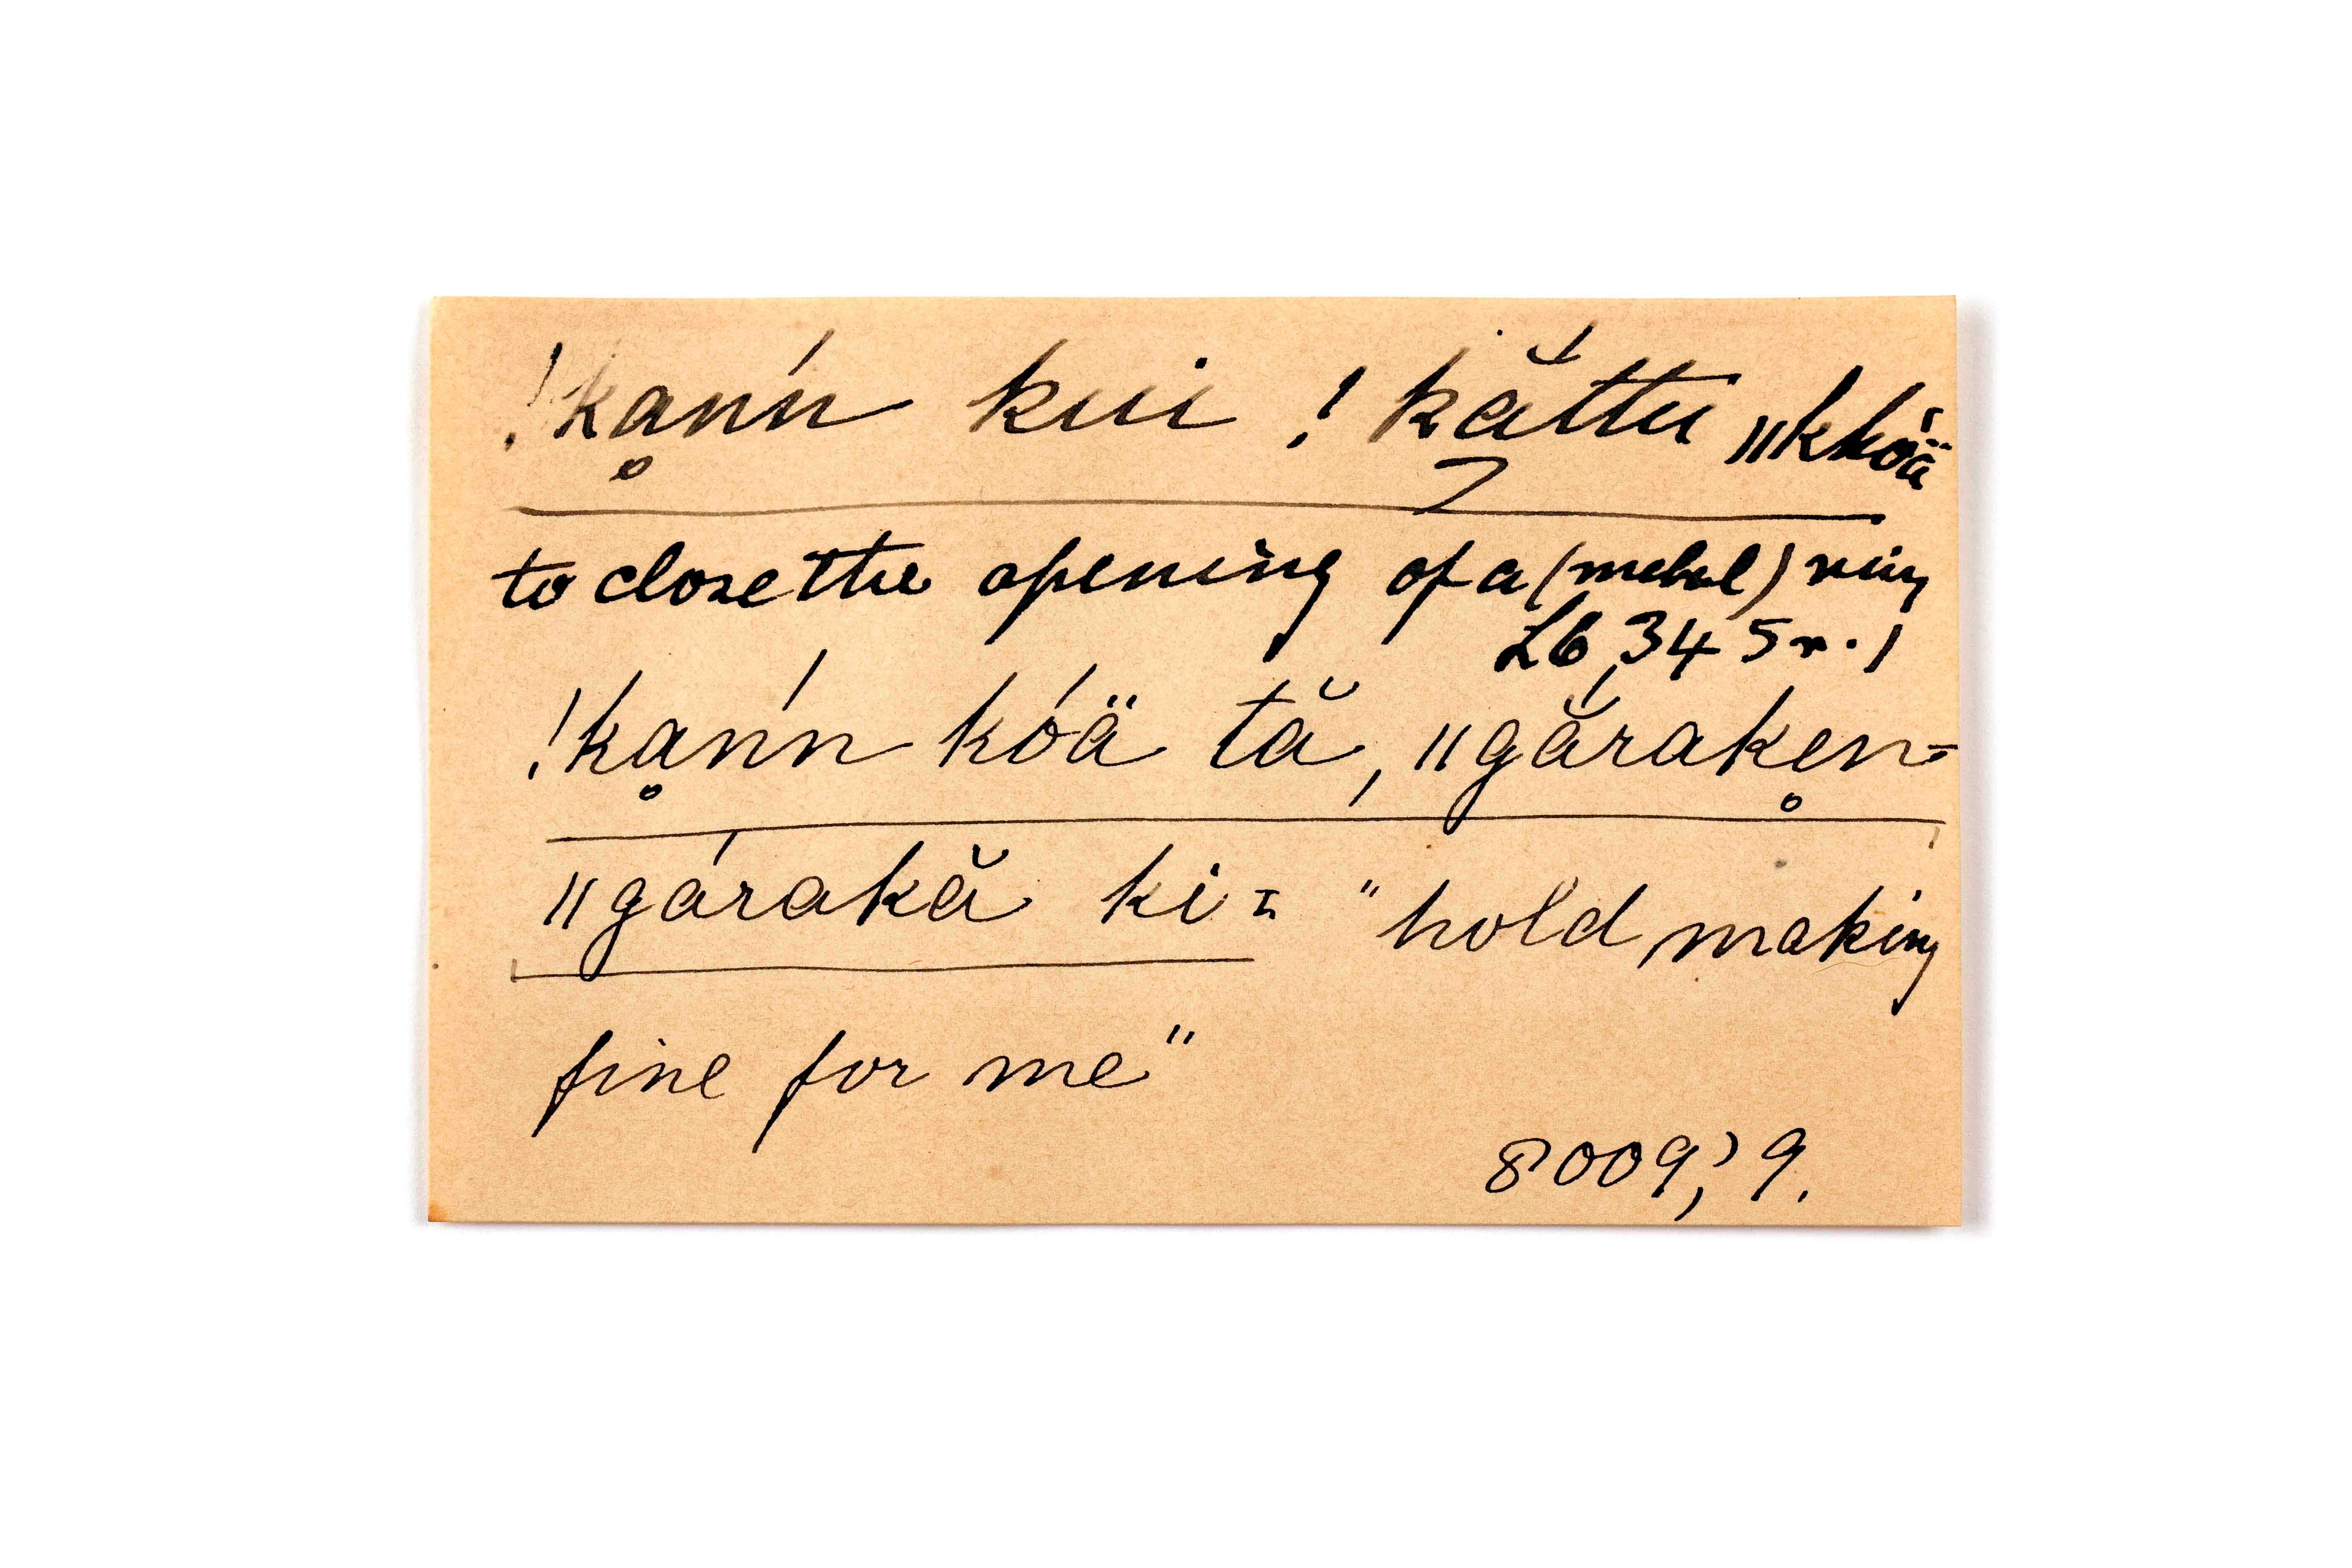 !kḁn'n kui !kắttu ǁkhóä
to close the opening of a (metal) ring
L6, 345 r. 1
!kḁn'n kóä tă, ǁgắrake̥n=
ǁgárakă ki = "hold making
fine for me"
8009,' 9.